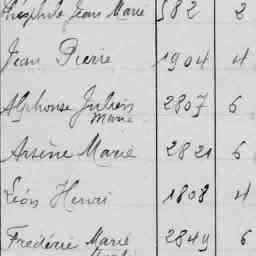 Théophile Jean Marie 582 2
Jean Pierre 1904 4
Alphonse Julien 2807 6
Marie
Arsène Marie 2821 6
Léon Henri 1808 4
Frédéric Marie 2849 6